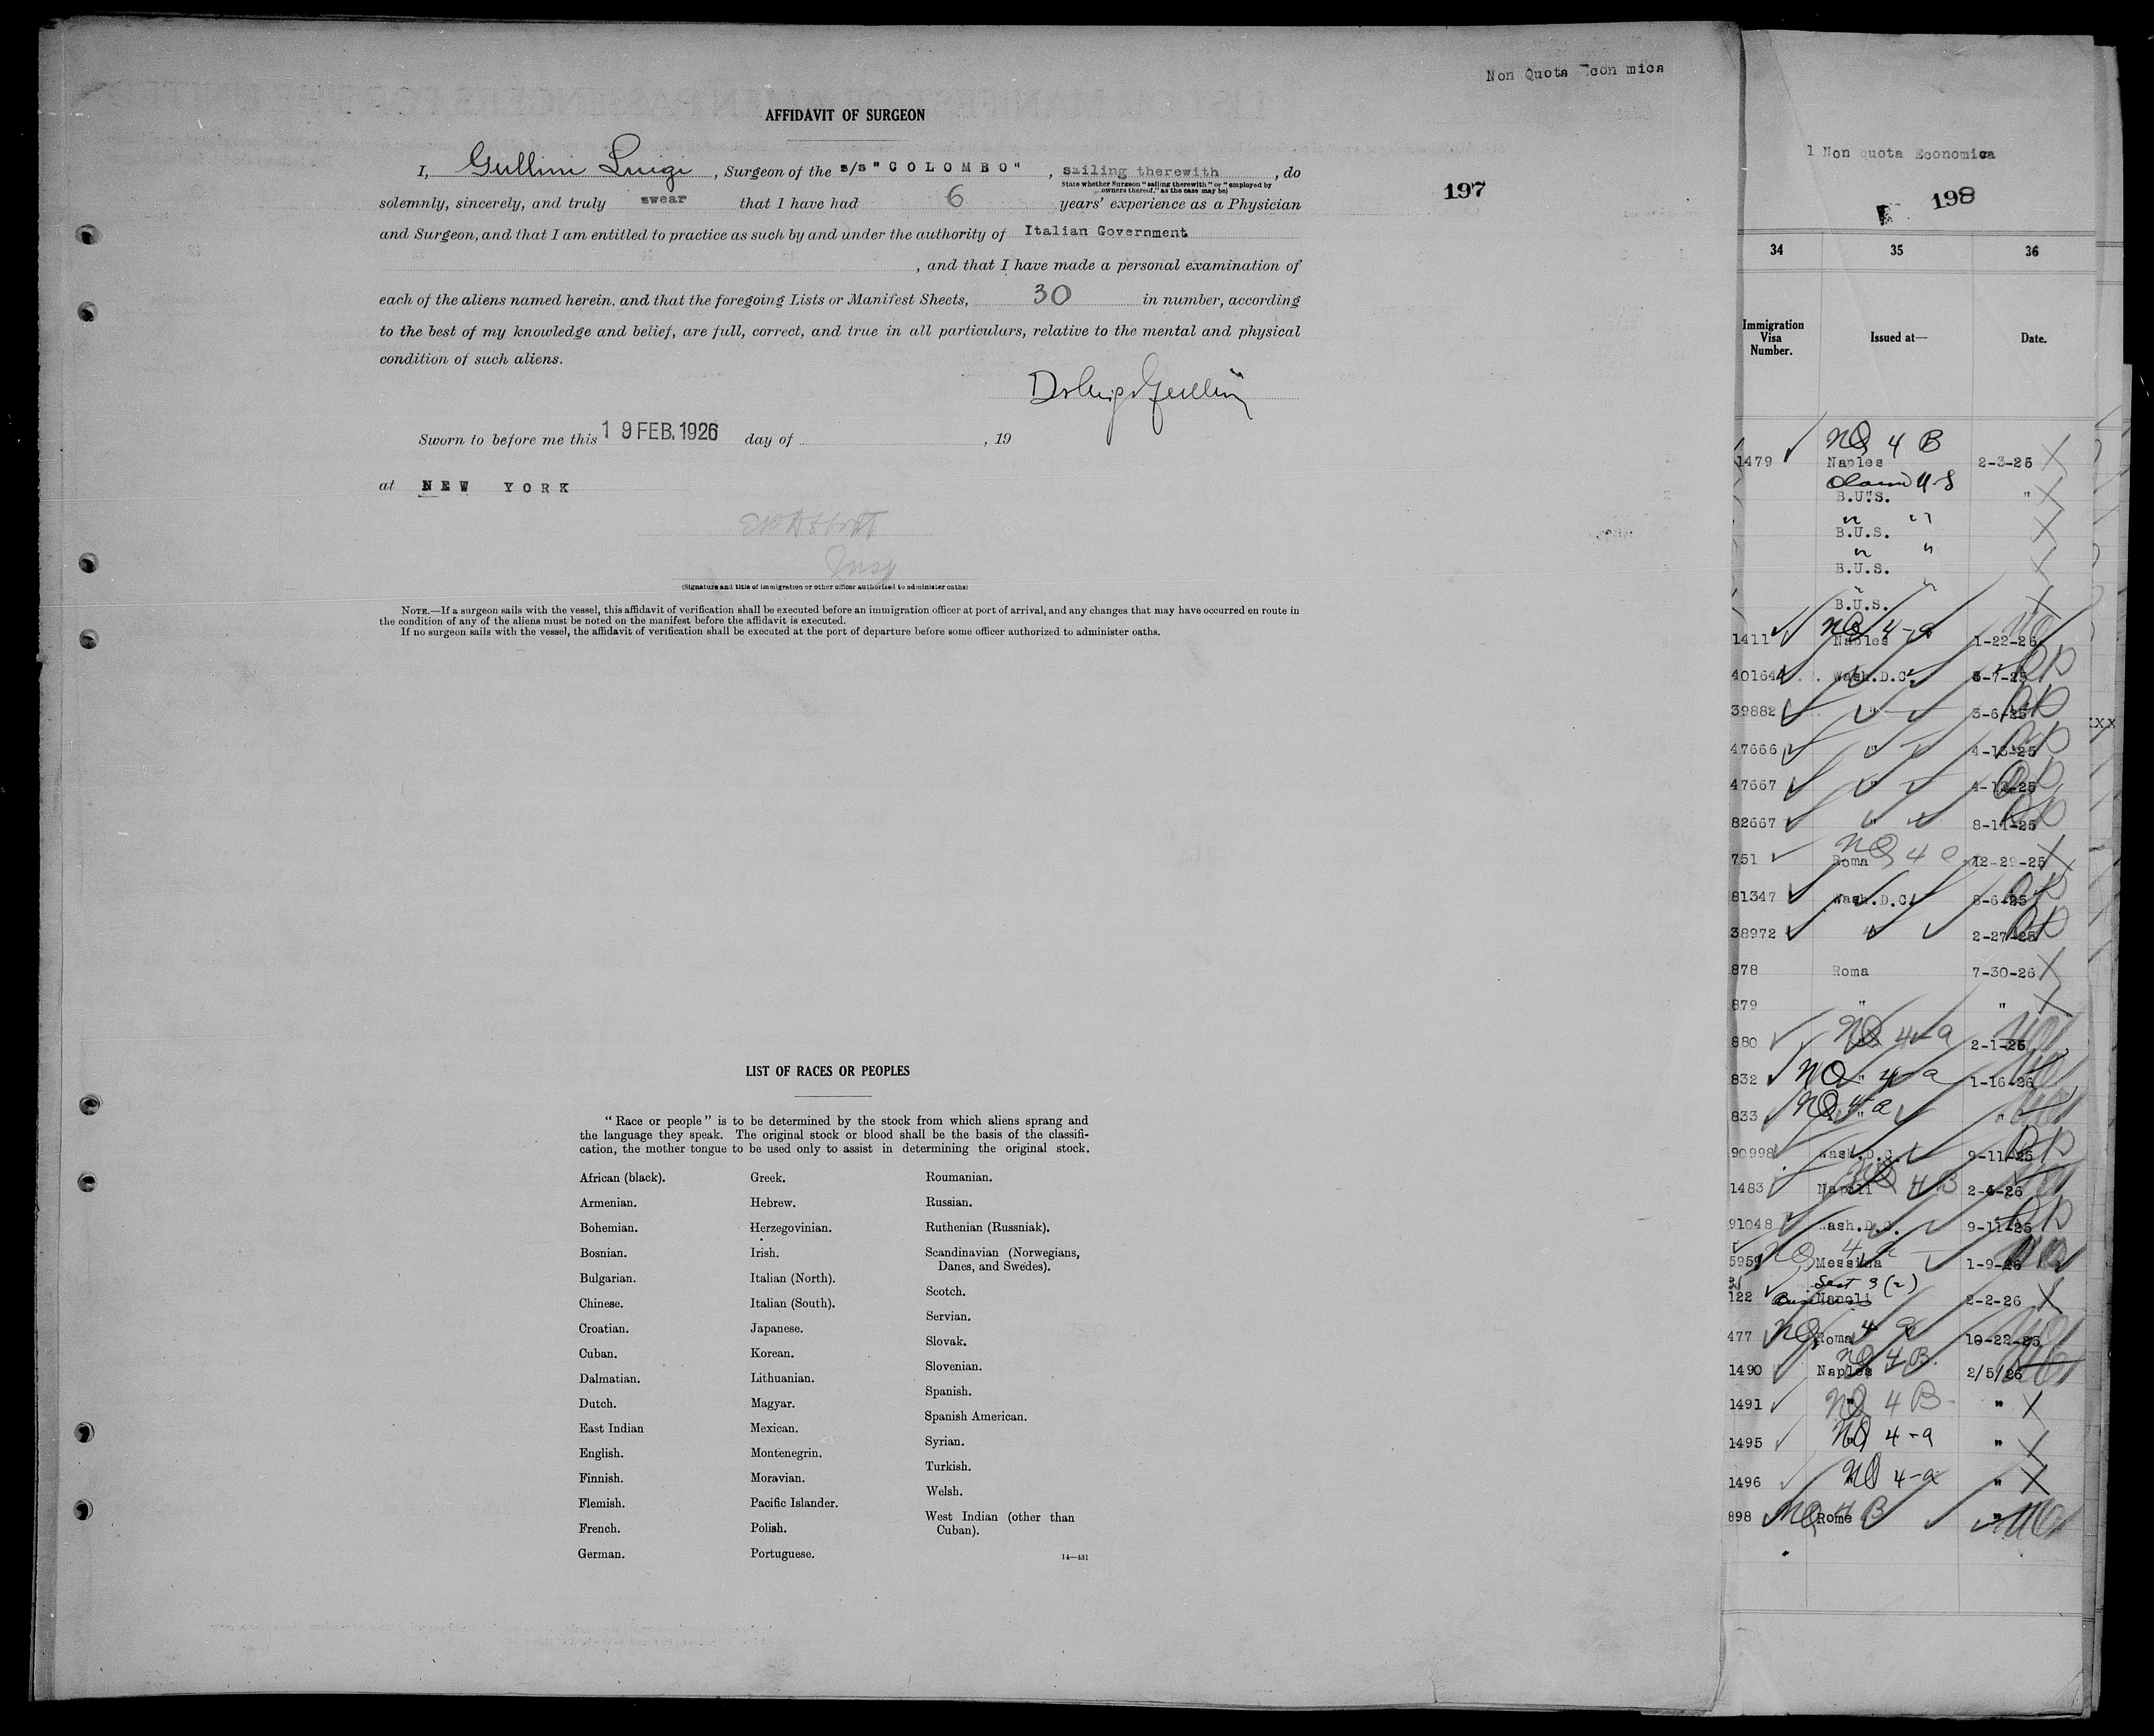 Non Quota con mica
AFFIDAVIT OF SURGEON
I, Gullini Luigi, Surgeon of the s/s "COLOMBO", sailing therewith, do
State whether Surgeon "sailing therewith" or "employed by
owners thereof," as the case may be)
solemnly, sincerely, and truly swear that I have had 6 years' experience as a Physician
and Surgeon, and that I am entitled to practice as such by and under the authority of Italian Government
, and that I have made a personal examination of
each of the aliens named herein, and that the foregoing Lists or Manifest Sheets, 30 in number, according
to the best of my knowledge and belief, are full, correct, and true in all particulars, relative to the mental and physical
condition of such aliens.
Dr Luigi Gullini
Sworn to before me this 19 FEB. 1926 day of , 19
at NEW YORK
Insp
(Signature and title of immigration or other officer authorized to administer oaths)
NOTE.—If a surgeon sails with the vessel, this affidavit of verification shall be executed before an immigration officer at port of arrival, and any changes that may have occurred en route in
the condition of any of the aliens must be noted on the manifest before the affidavit is executed.
If no surgeon sails with the vessel, the affidavit of verification shall be executed at the port of departure before some officer authorized to administer oaths.
197
LIST OF RACES OR PEOPLES
"Race or people" is to be determined by the stock from which aliens sprang and
the language they speak. The original stock or blood shall be the basis of the classifi-
cation, the mother tongue to be used only to assist in determining the original stock.
African (black).
Armenian.
Bohemian.
Bosnian.
Bulgarian.
Chinese.
Croatian.
Cuban.
Dalmatian.
Dutch.
East Indian
English.
Finnish.
Flemish.
French.
German.
Greek.
Hebrew.
Herzegovinian.
Irish.
Italian (North).
Italian (South).
Japanese.
Korean.
Lithuanian.
Magyar.
Mexican.
Montenegrin.
Moravian.
Pacific Islander.
Polish.
Portuguese.
Roumanian.
Russian.
Ruthenian (Russniak).
Scandinavian (Norwegians,
Danes, and Swedes).
Scotch.
Servian.
Slovak.
Slovenian.
Spanish.
Spanish American.
Syrian.
Turkish.
Welsh.
West Indian (other than
Cuban).
14—431
1 Non quota Economica
198
34 35 36
Immigration
Visa
Number.
Issued at—
Date.
NQ 4 B
1479 Naples 2-3-26
Claim U-S
B.U.S. "
" "
B.U.S.
" "
B.U.S.
" "
B.U.S.
NQ 4-a
1411 Naples 1-22-26
40164 Wash.D.C. 3-7-25
39882 " 3-6-25
47666 " 4-13-25
47667 " 4-13-25
82667 " 8-11-25
NQ 4 a
751 Roma 12-29-25
81347 Wash.D.C. 8-6-25
38972 " 2-27-25
878 Roma 7-30-26
879 " "
880 NQ 4-a 2-1-26
832 NQ " 4-a 1-16-26
833 NQ 4-a " "
90998 Wash.D.C. 9-11-25
1483 Napoli NQ 4 B 2-6-26
91048 Wash.D.C. 9-11-25
NQ 4 a
5959 Messina 1-9-26
Sect 3 (2)
122 Napoli 2-2-26
477 NQ Roma 4 a 10-22-25
NQ 4 B.
1490 Naples 2/5/26
1491 NQ 4 B- "
1495 NQ 4-a "
1496 NQ 4-a "
898 NQ Rome 4 B "